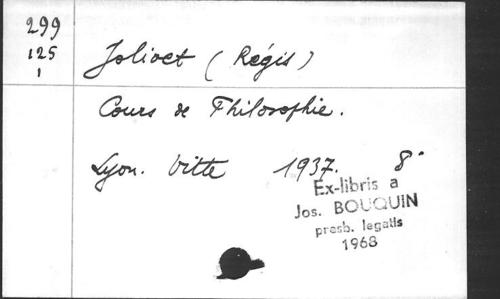 299
125
1
Jolivet (Régis)
Cours de Philosophie.
Lyon. Vitte 1937. 8°
Ex-libris a
Jos. BOUQUIN
presb. legatis
1968